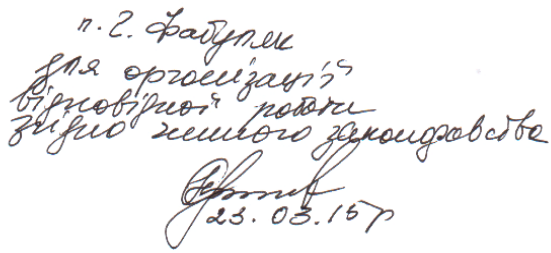 п. Г. Фабуляк
для організації
відповідної роботи
згідно чинного законодавства
23.03.15р